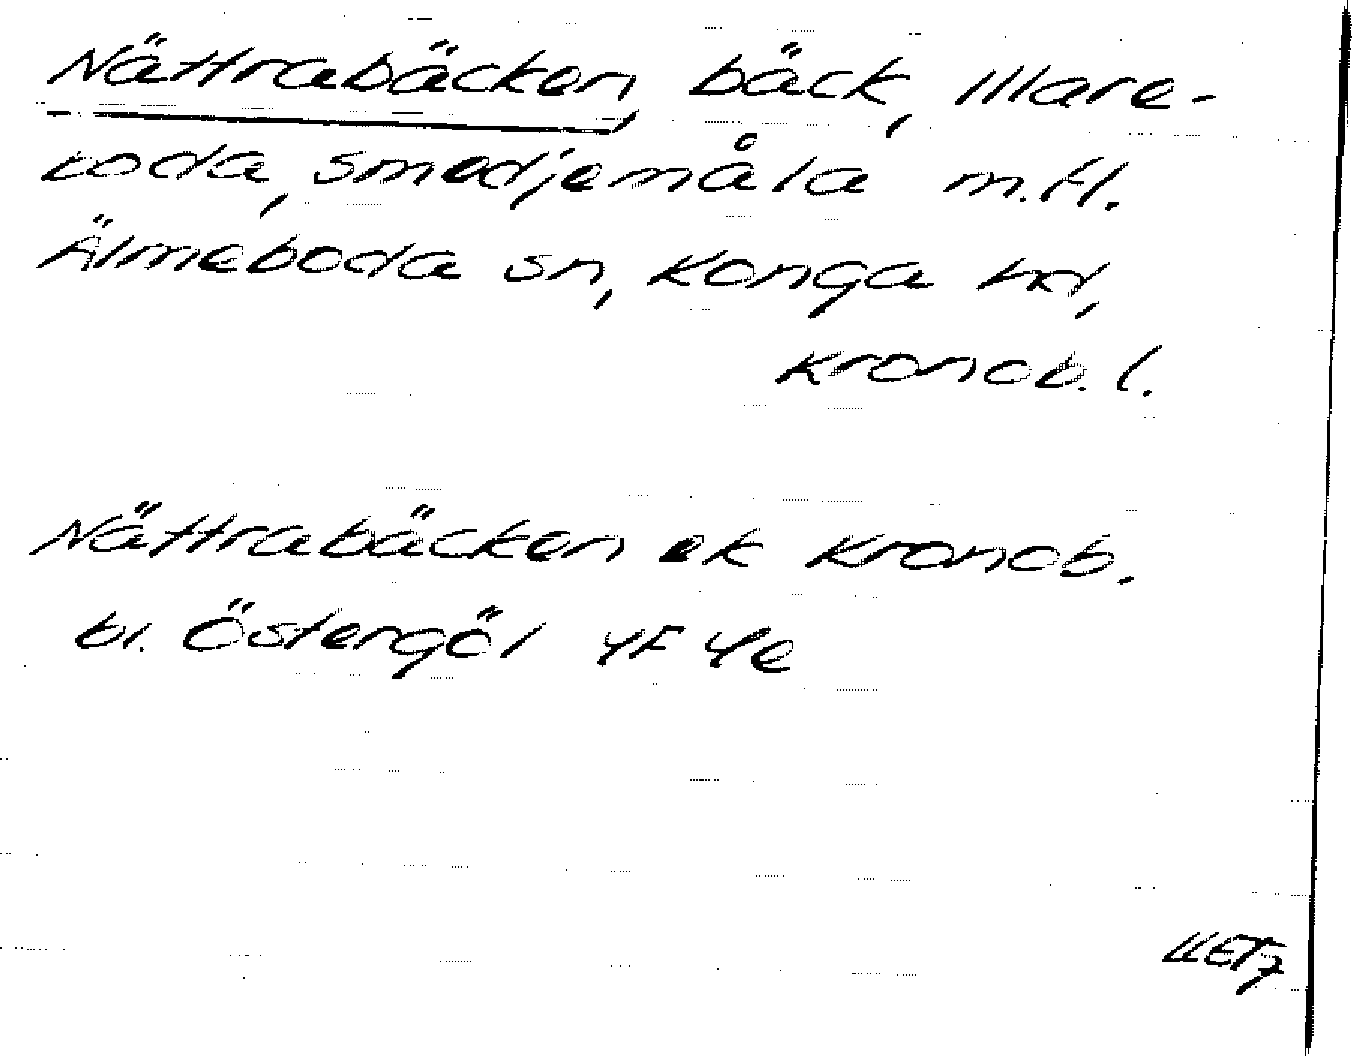 Nättrabäcken, bäck, Illare-
boda, Smedjemåla m.fl.
Älmeboda sn, Konga hd,
Kronob. l.
Nättrabäcken ek Kronob.
bl. Östergöl 4F 4e